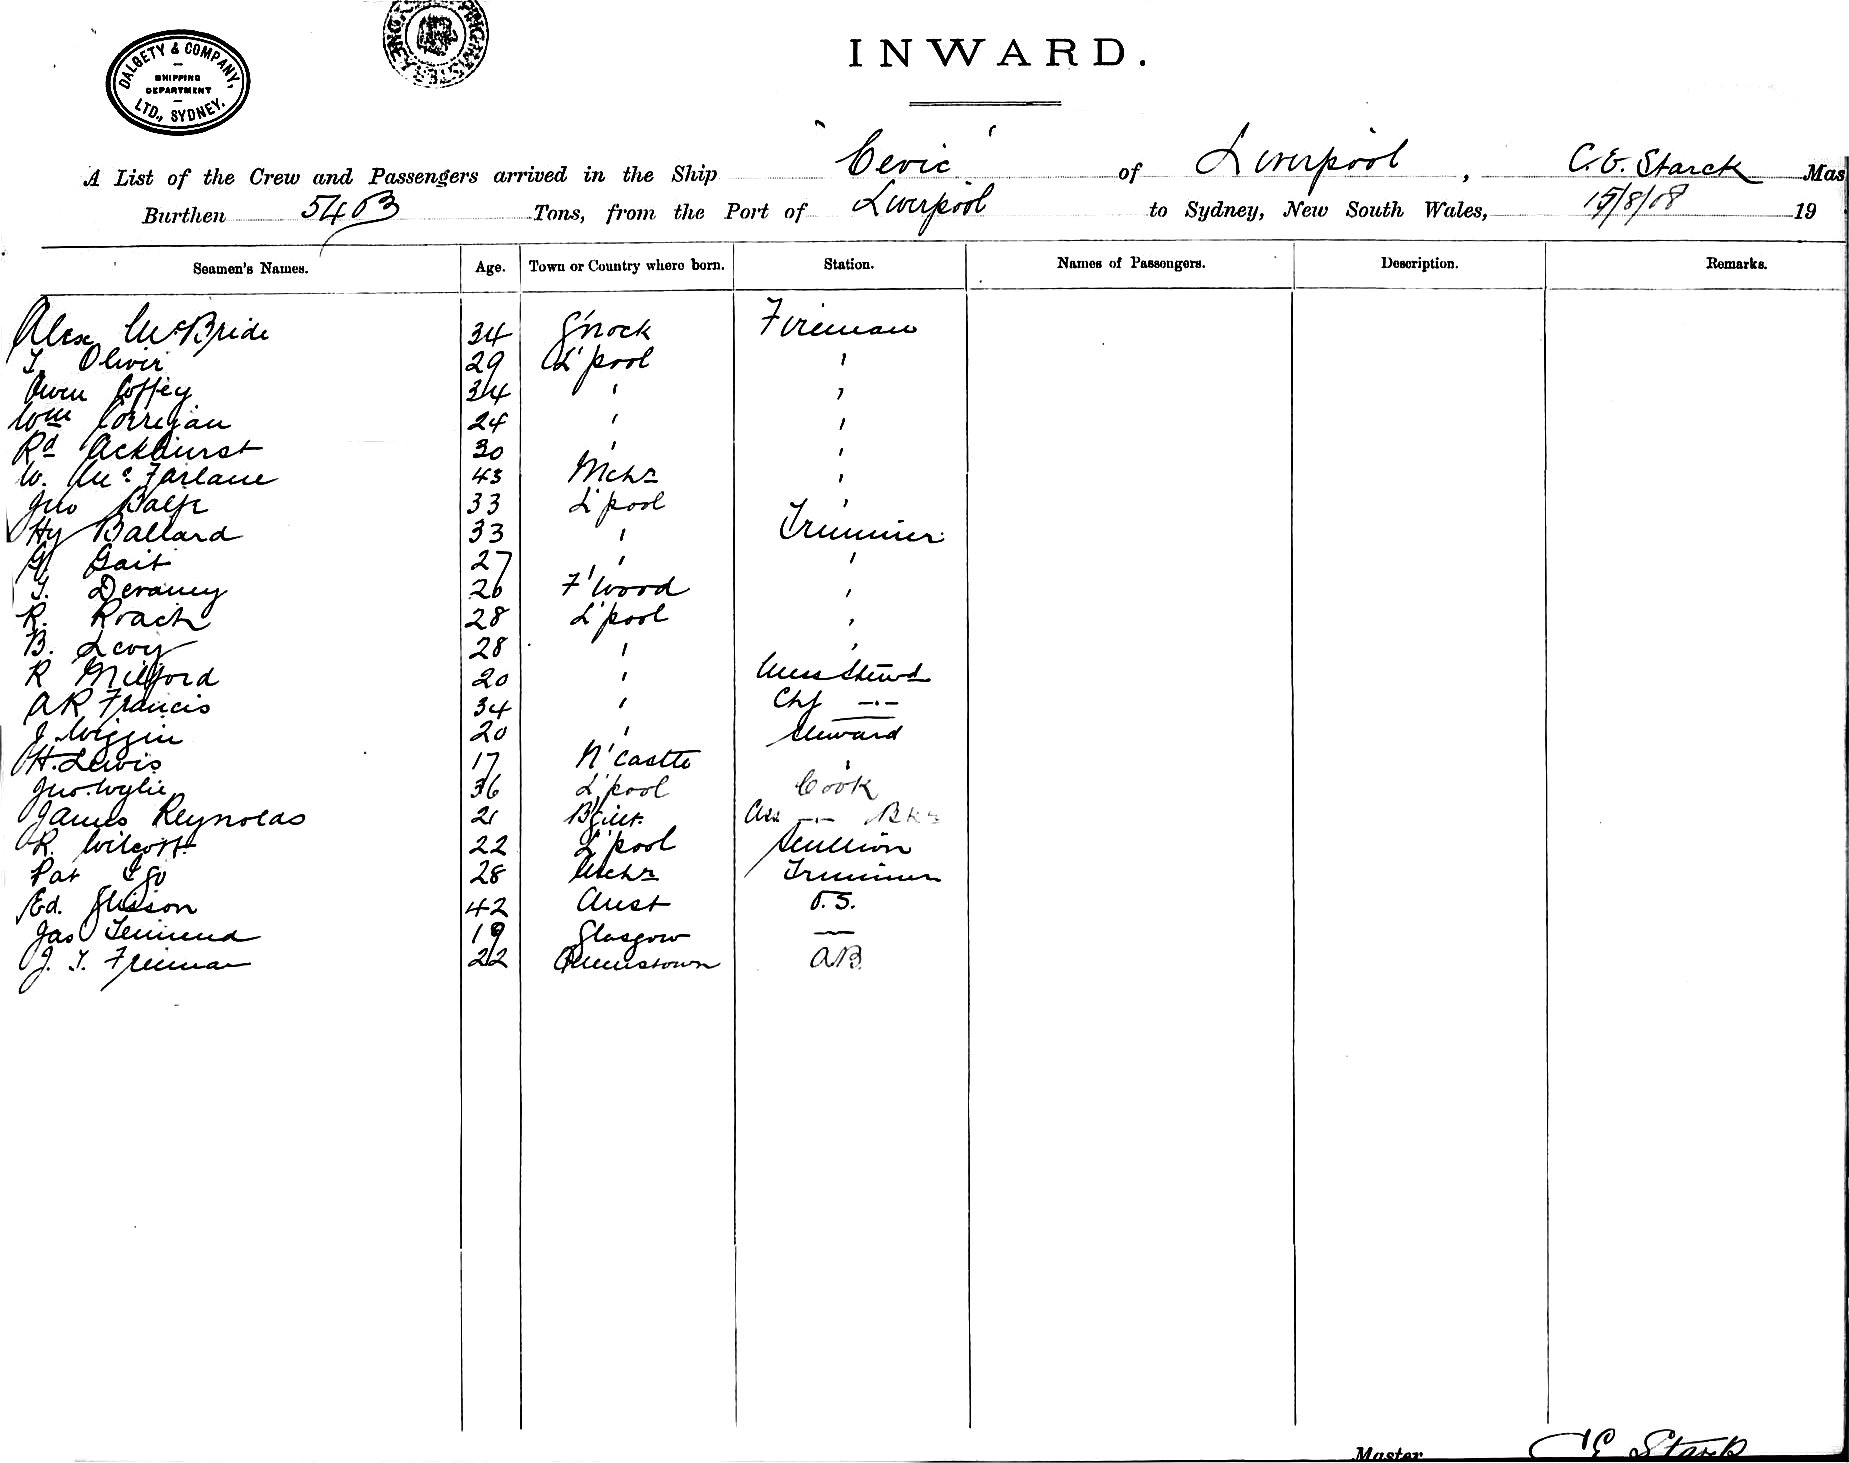 DALGETY & COMPANY,
SHIPPING
DEPARTMENT
LTD., SYDNEY.
INWARD.
A List of the Crew and Passengers arrived in the Ship "Cevic" of Liverpool, C. E. Starck Mas
Burthen 5403 Tons, from the Port of Liverpool to Sydney, New South Wales, 15/8/08 19
Seamen's Names. Age. Town or Country where born. Station. Names of Passengers. Description. Remarks.
Alex McBride 34 G'nock Fireman
T. Oliver 29 L'pool "
Owen Coffey 34 " "
Wm Corrigan 24 " "
Rd Ackhurst 30 " "
W. McFarlane 43 Mchr "
Jno Balfe 33 L'pool "
Hy Ballard 33 " Trimmer
G. Gait 27 " "
T. Devaney 26 F'wood "
R. Roach 28 L'pool "
B. Levy 28 " "
R Milford 20 " Mess Stewd
A R Francis 34 " Chf -"-
J. Wiggin 20 " Steward
H. Lewis 17 N'Castle "
Jno. Wylie 36 L'pool Cook
James Reynolds 21 Ass -"- Bkr
R. Wilcott 22 L'pool Scullion
Pat Ego 28 Mchr Trimmer
Ed. 42 Aust O.S.
Jas 19 Glasgow —
J. T. Freeman 22 Queenstown AB
Master C E Starck